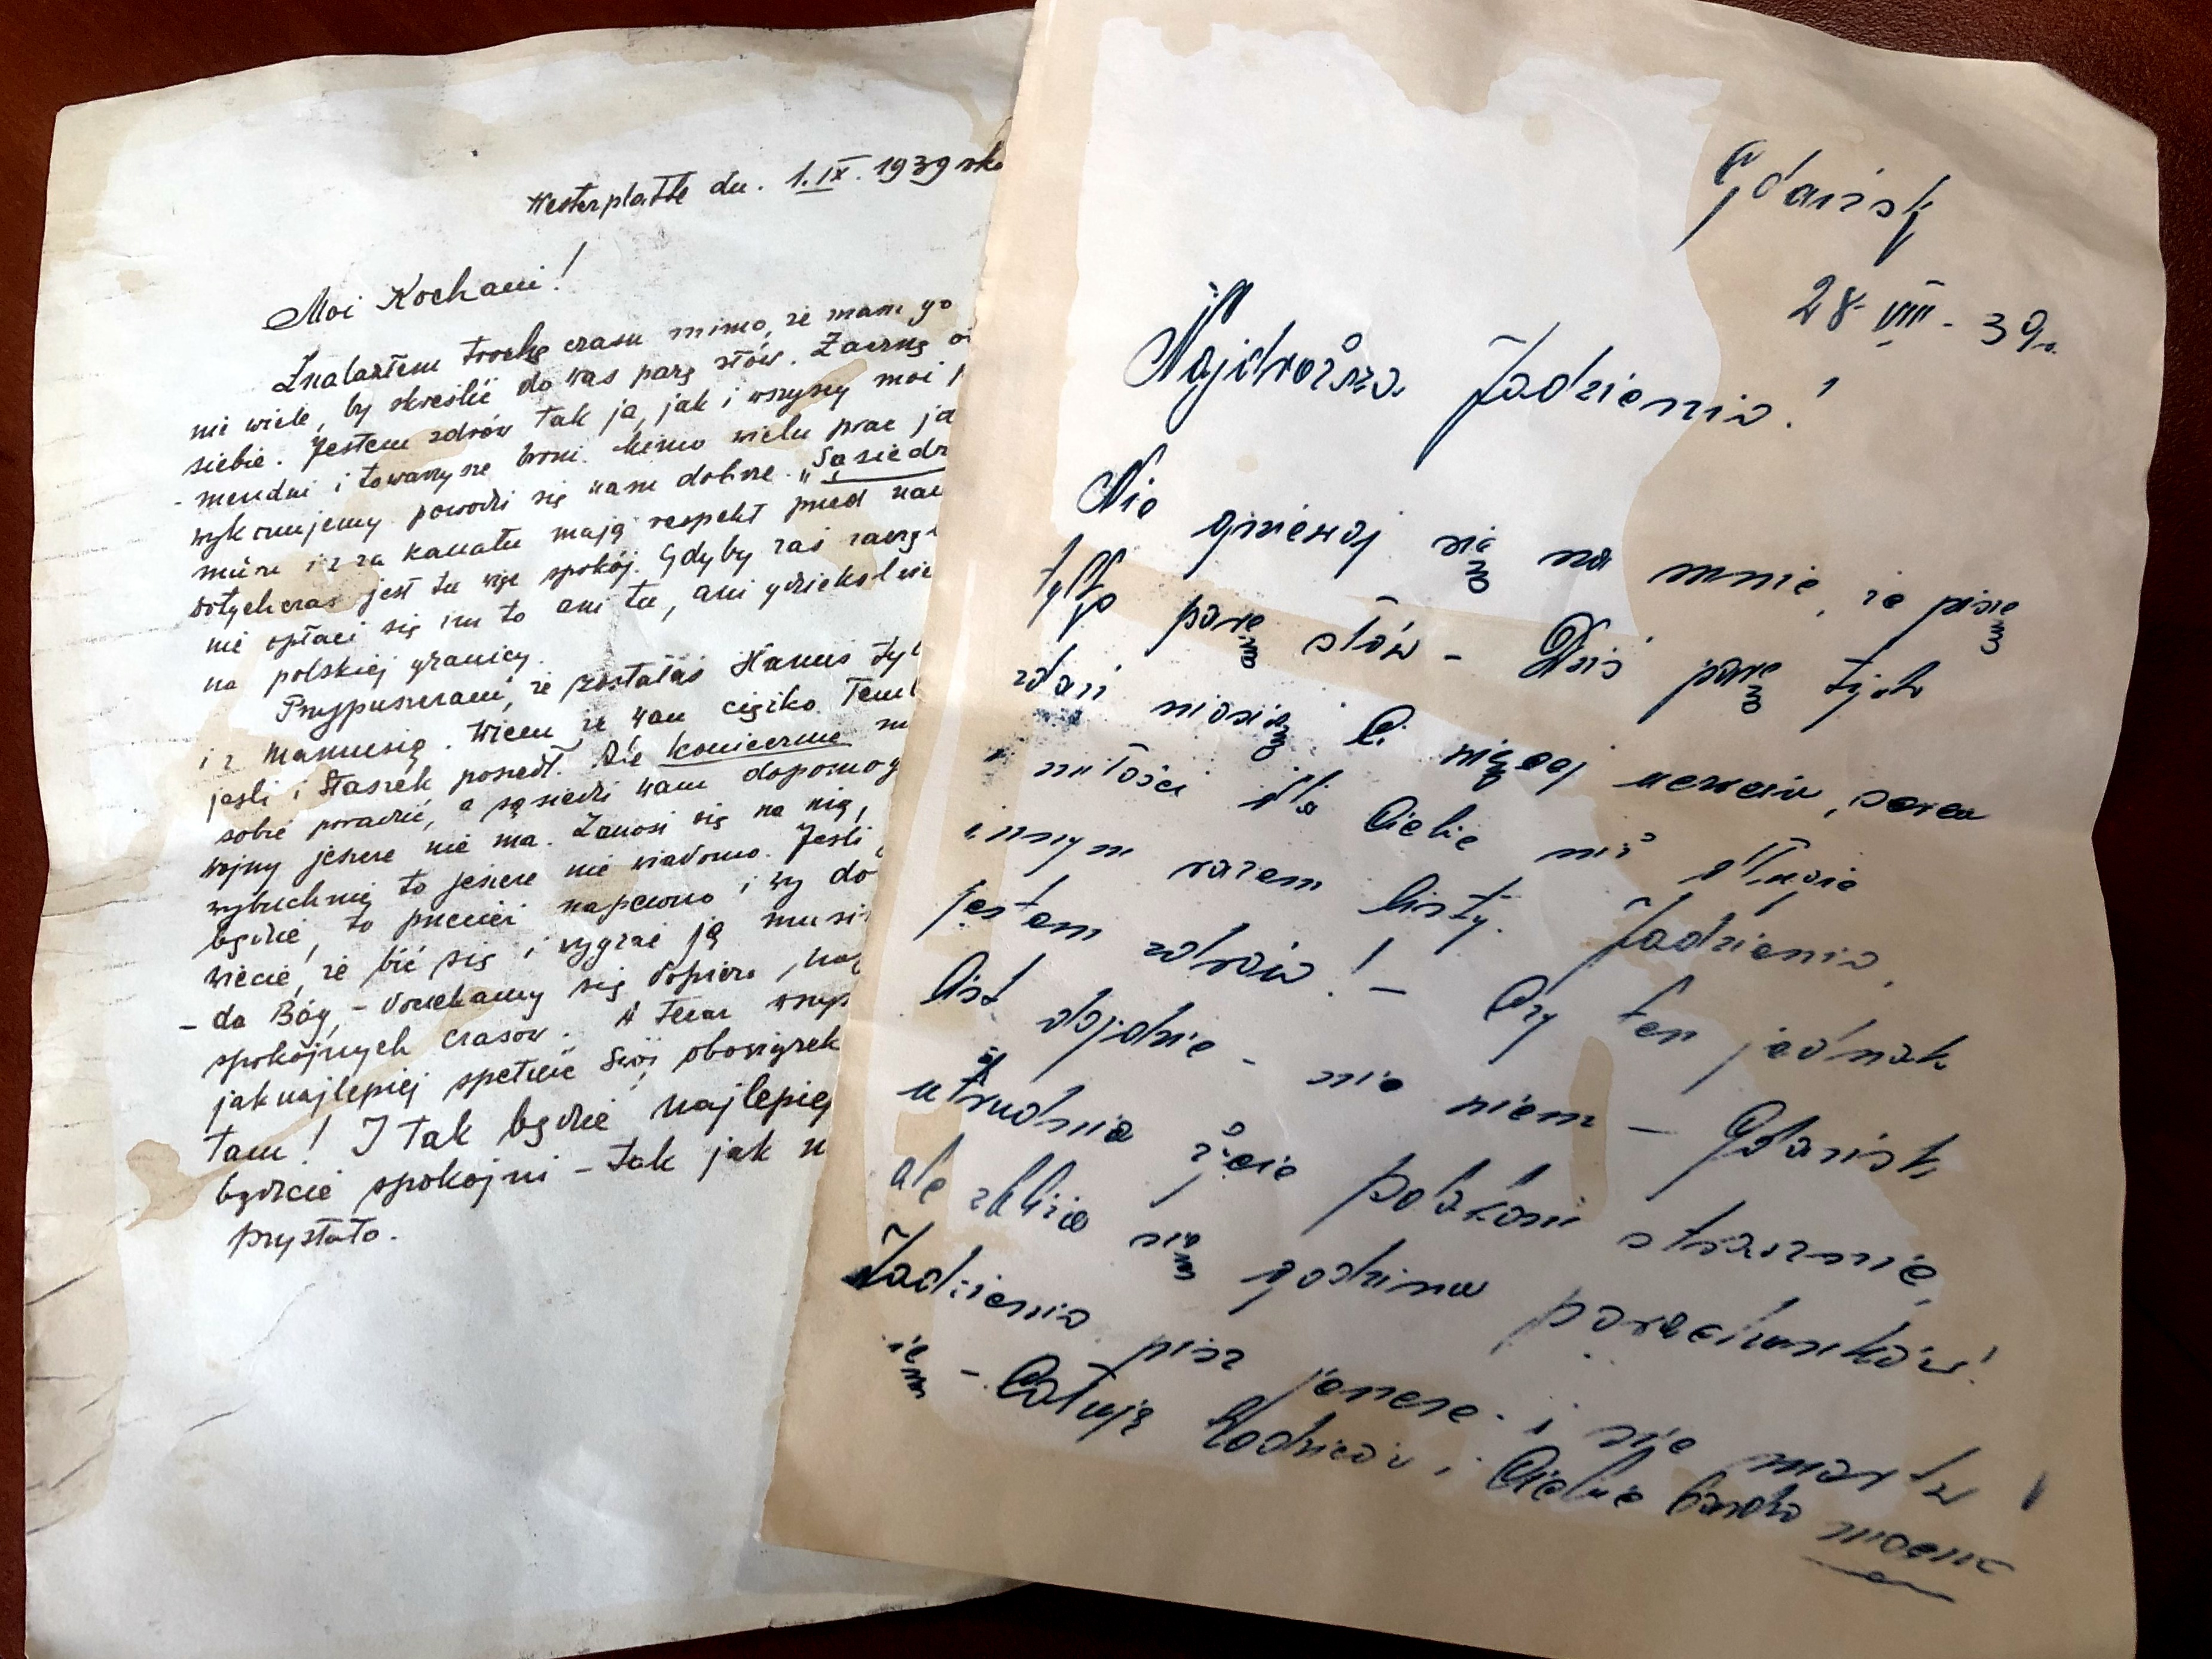 Westerplatte dn. 1.IX. 1939 rok
Moi Kochani!
Znalazłem trochę czasu mimo, że mam go
nie wiele, by skreślić do Was parę słów. Zacznę o
siebie. Jestem zdrów tak ja, jak i wszyscy moi
- mendni i towarzysze broni. Mimo wielu prac ja
wykonujemy powodzi się nam dobrze. "Sąsiedz
i z za kanału mają respekt przed na
dotychczas jest tu więc spokój. Gdyby zaś zaczę
nie opłaci się im to ani tu, ani gdziekolwie
na polskiej granicy.
Przypuszczam, że zostałaś Hanuś tyl
i z Mamusią. Wiem że Wam ciężko. Tem
jeśli i Staszek poszedł. Ale koniecznie
sobie poradzić, a sąsiedzi Wam dopomog
wojny jeszcze nie ma. Zanosi się na nią,
wybuchnie to jeszcze nie wiadomo. Jeśli
będzie, to przecież napewno i wy do
wiecie, że bić się i wygrać ją musi
- da Bóg, - doczekamy się dopiero
spokojnych czasów. A teraz wszys
jaknajlepiej spełnić Swój obowiązek
tam! I tak będzie najlepiej
bądźcie spokojni - tak jak
przystało.
Gdańsk
28 VIII - 39r.
Najdroższa Jadzieniu!
Nie gniewaj się na mnie, że piszę
tylko parę słów - Dziś parę tych
zdań niosią Ci więcej uczuciu, serca
i miłości dla Ciebie niż długie
innym razem listy. Jadzieniu,
jestem zdrów! - Czy ten jednak
list dojdzie - nie wiem - Gdańsk
utrudnia życie Polakom strasznie,
ale zbliża się godzina porachunków!
Jadzieniu pisz jeszcze - i nie martw
się - Całuję Rodziców i Ciebie bardzo mocno